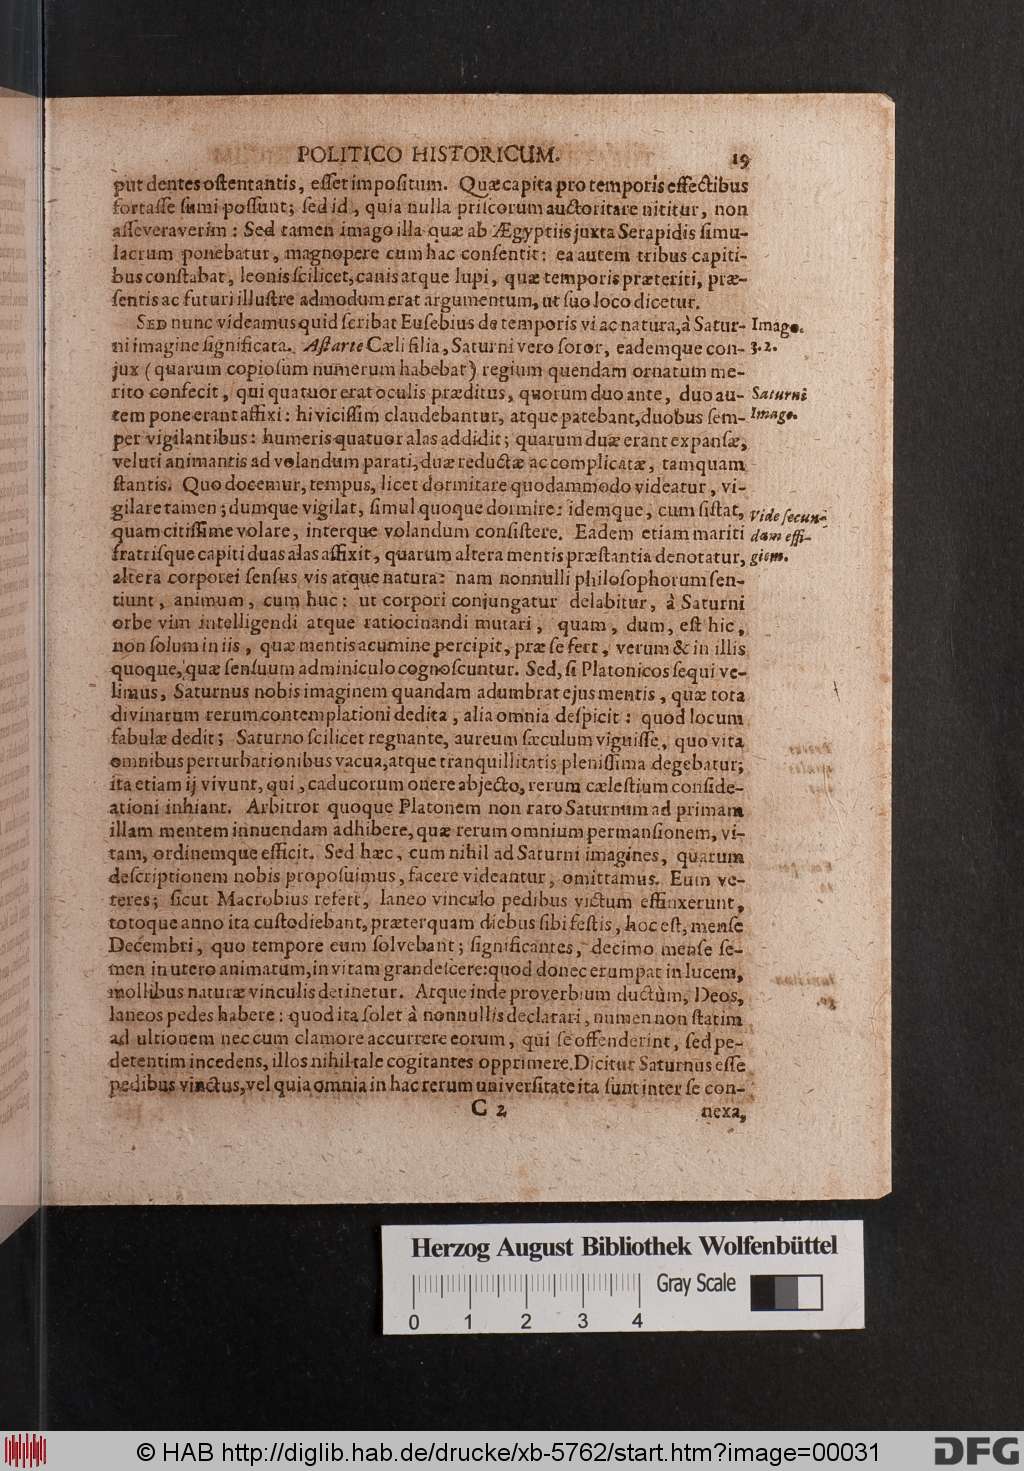 POLITICO HISTORICUM. 19
put dentes oſtentantis, eſſet impoſitum. Quæ capita pro temporis effectibus
fortaſſe ſumi poſſunt; ſed id, quia nulla priſcorum auctoritate nititur, non
aſſeveraverim: Sed tamen imago illa quæ ab Ægyptiis juxta Serapidis ſimu-
lacrum ponebatur, magnopere cum hac conſentit: ea autem tribus capiti-
bus conſtabat, leonis ſcilicet, canis atque lupi, quæ temporis præteriti, præ-
ſentis ac futuri illuſtre admodum erat argumentum, ut ſuo loco dicetur.
SED nunc videamus quid ſcribat Euſebius de temporis vi ac natura, à Satur- Image.
ni imagine ſignificata. Aſtarte Cæli filia, Saturni vero ſoror, eademque con- 3. 2.
jux (quarum copioſum numerum habebat) regium quendam ornatum me-
rito confecit, qui quatuor erat oculis præditus, quorum duo ante, duo au- Saturni
tem pone erant affixi: hi viciſſim claudebantur, atque patebant, duobus ſem- Imago.
per vigilantibus: humeris quatuor alas addidit; quarum duæ erant expanſæ,
veluti animantis ad volandum parati, duæ reductæ ac complicatæ, tamquam
ſtantis. Quo docemur, tempus, licet dormitare quodammodo videatur, vi-
gilare tamen; dumque vigilat, ſimul quoque dormire: idemque, cum ſiſtat, Vide ſecun-
quam citiſſime volare, interque volandum conſiſtere. Eadem etiam mariti dam effi-
fratriſque capiti duas alas affixit, quarum altera mentis præſtantia denotatur, giem.
altera corporei ſenſus vis atque natura: nam nonnulli philoſophorum ſen-
tiunt, animum, cum huc: ut corpori conjungatur delabitur, à Saturni
orbe vim intelligendi atque ratiocinandi mutari, quam, dum, eſt hic,
non ſolum in iis, quæ mentis acumine percipit, præ ſe fert, verum & in illis
quoque, quæ ſenſuum adminiculo cognoſcuntur. Sed, ſi Platonicos ſequi ve-
limus, Saturnus nobis imaginem quandam adumbrat ejus mentis, quæ tota
divinarum rerum contemplationi dedita, alia omnia deſpicit: quod locum
fabulæ dedit; Saturno ſcilicet regnante, aureum ſæculum viguiſſe, quo vita
omnibus perturbationibus vacua, atque tranquillitatis pleniſſima degebatur;
ita etiam ij vivunt, qui, caducorum onere abjecto, rerum cæleſtium conſide-
ationi inhiant. Arbitror quoque Platonem non raro Saturnum ad primam
illam mentem innuendam adhibere, quæ rerum omnium permanſionem, vi-
tam, ordinemque efficit. Sed hæc, cum nihil ad Saturni imagines, quarum
deſcriptionem nobis propoſuimus, facere videantur, omittamus. Eum ve-
teres; ſicut Macrobius refert, laneo vinculo pedibus victum effinxerunt,
totoque anno ita cuſtodiebant, præterquam diebus ſibi feſtis, hoc eſt, menſe
Decembri, quo tempore eum ſolvebant; ſignificantes, decimo menſe ſe-
men in utero animatum, in vitam grandeſcere: quod donec erumpat in lucem,
mollibus naturæ vinculis detinetur. Atque inde proverbium ductùm, Deos,
laneos pedes habere: quod ita ſolet à nonnullis declarari, numen non ſtatim
ad ultionem nec cum clamore accurrere eorum, qui ſe offenderint, ſed pe-
detentim incedens, illos nihil tale cogitantes opprimere. Dicitur Saturnus eſſe
pedibus vinctus, vel quia omnia in hac rerum univerſitate ita ſunt inter ſe con-
C 2 nexa,
Herzog August Bibliothek Wolfenbüttel
Gray Scale
0 1 2 3 4
© HAB http://diglib.hab.de/drucke/xb-5762/start.htm?image=00031
DFG